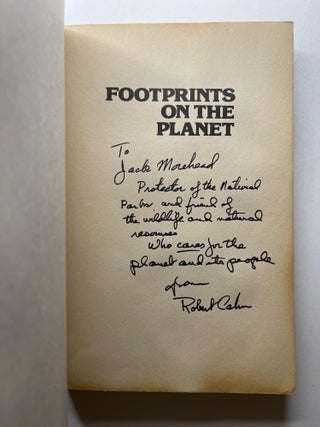 FOOTPRINTS
ON THE
PLANET
To
Jack Morehead
Protector of the National
Parks and friend of
the wildlife and natural
resources
Who cares for the
planet and its people
from
Robert Cahn